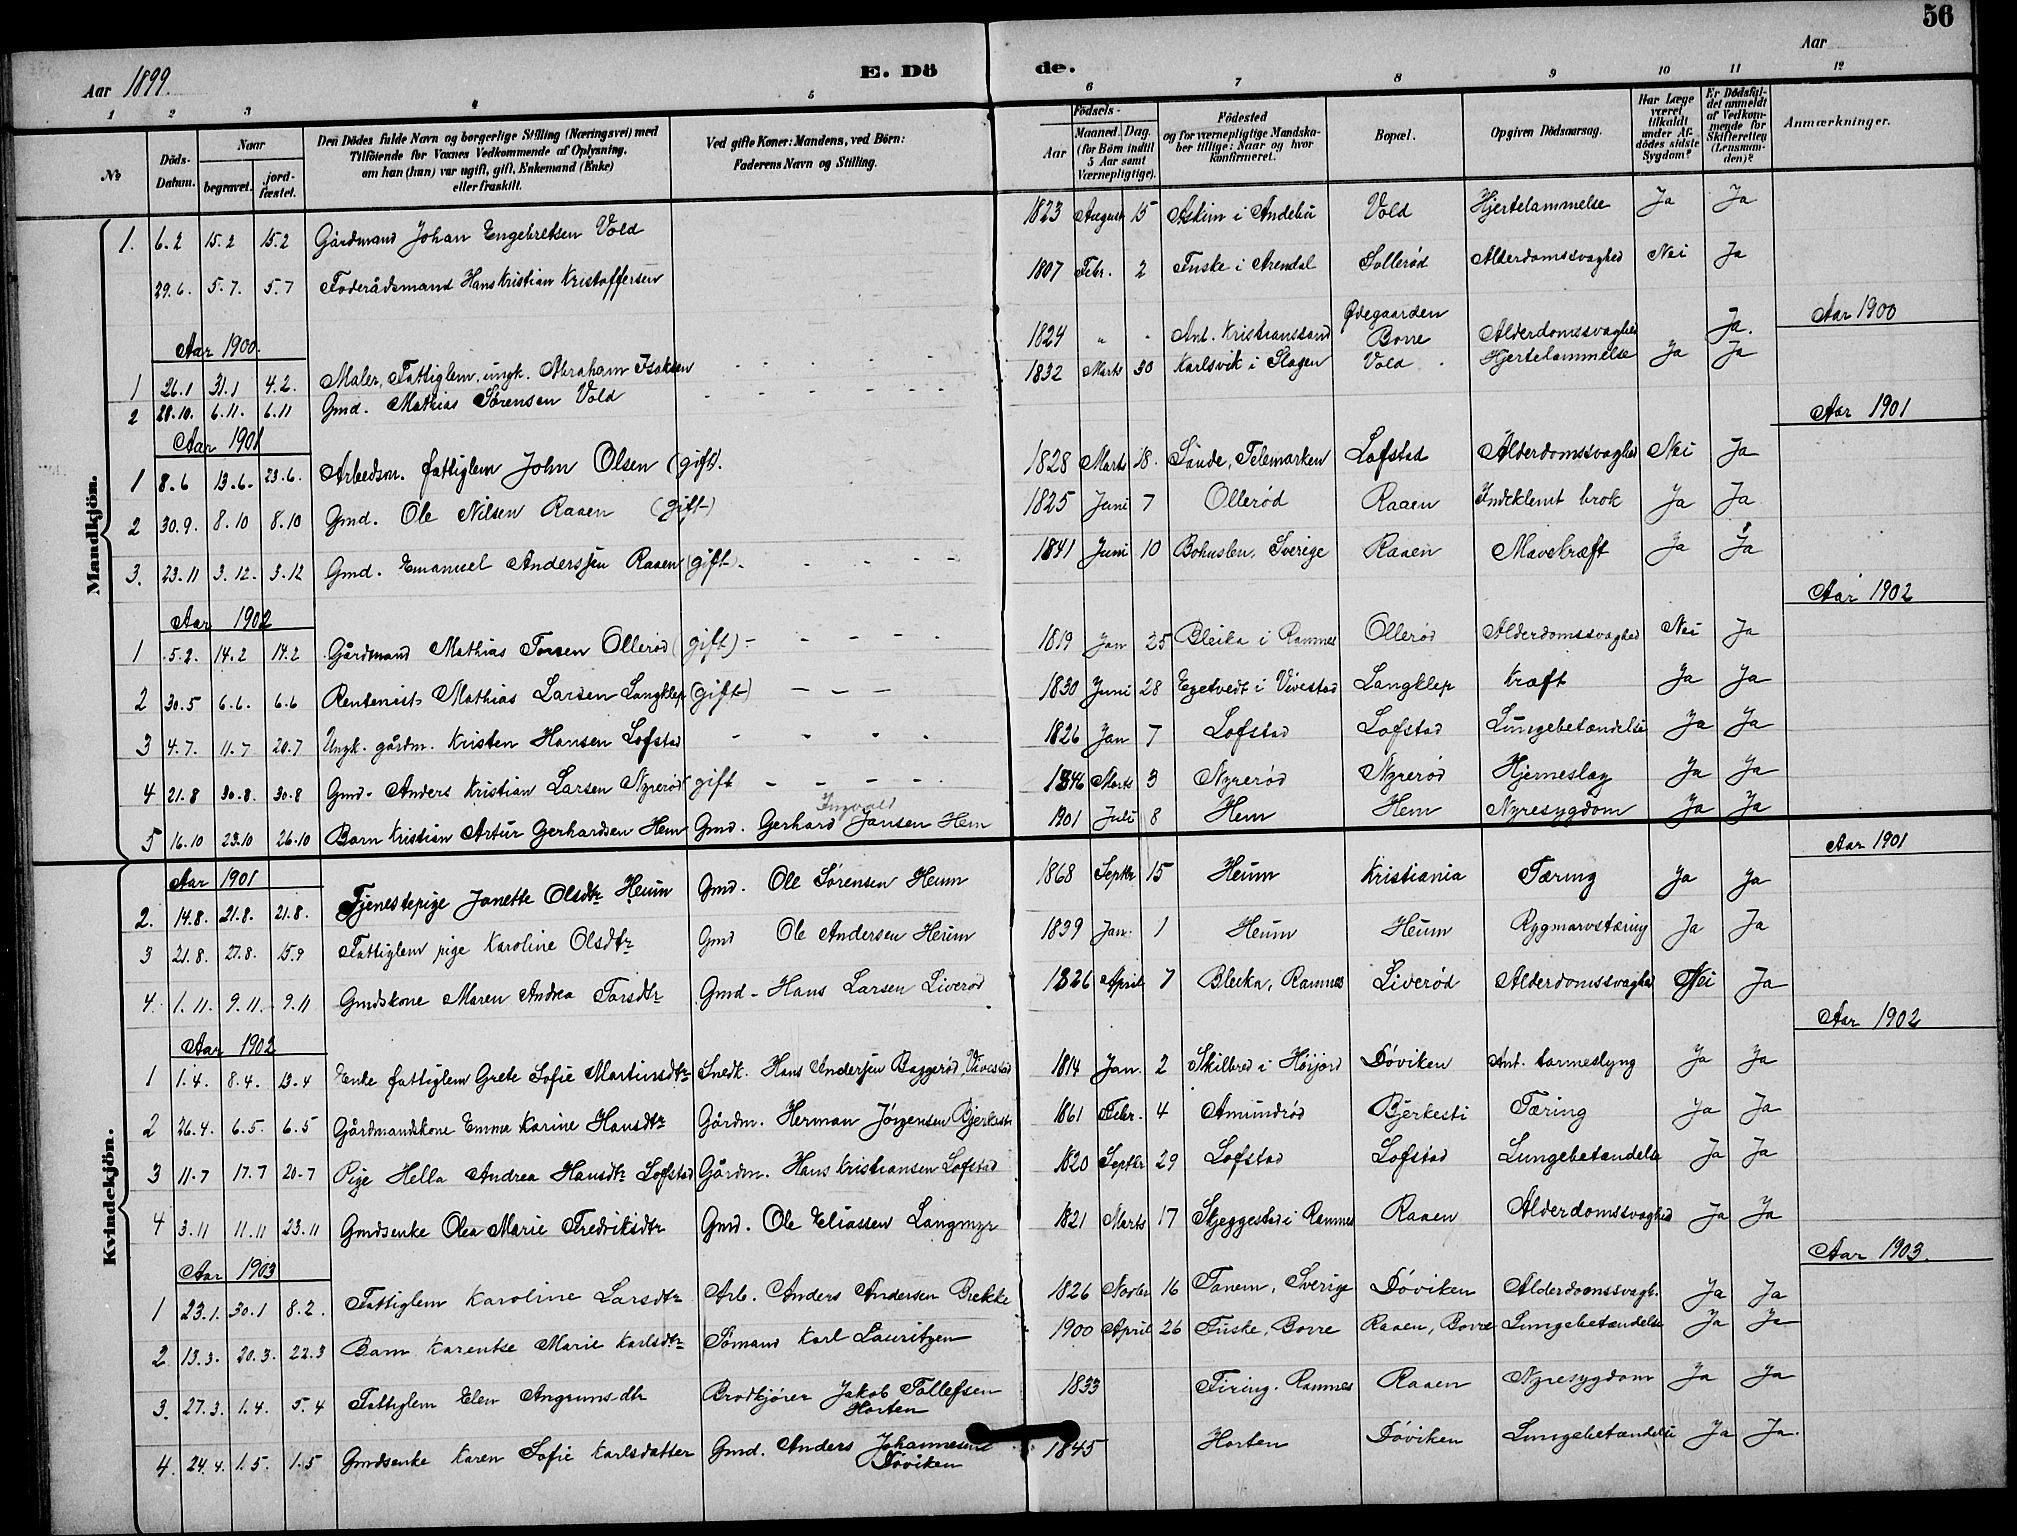 56
Aar 1899.
E. Dö
de.
Aar
1 2 3 4 5 6 7 8 9 10 11 12
№
Döds-Datum.
Naar
begravet.
jord-fæstet.
Den Dödes fulde Navn og borgerlige Stilling (Næringsvei) med Tilföiende for Voxnes Vedkommende af Oplysning, om han (hun) var ugift, gift, Enkemand (Enke) eller fraskilt.
Ved gifte Koner: Mandens, ved Börn: Faderens Navn og Stilling.
Födsels-
Aar
Maaned. Dag.
(for Börn indtil 5 Aar samt Værnepligtige).
Födested og for værnepligtige Mandskaber tillige: Naar og hvor konfirmeret.
Bopæl.
Opgiven Dödsaarsag.
Har Læge været tilkaldt under Afdödes sidste Sygdom?
Er Dödsfaldet anmeldt af Vedkommende for Skifteretten (Lensmanden)?
Anmærkninger.
Mandkjön.
1. 6.2 15.2 15.2 Gårdmand Johan Engebretsen Vold 1823 August 15 Askim i Andebu Vold Hjertelammelse Ja Ja
29.6. 5.7. 5.7 Føderådsmand Hans Kristian Kristoffersen 1807 Febr. 2 Fuske i Arendal Sollerød Alderdomssvaghed Nei Ja
Aar 1900. Aar 1900
1 26.1 31.1 4.2. Maler, Fattiglem, ungk. Abraham Isaksen 1824 " " Ant. Kristianssand Ødegaarden Borre Alderdomssvaghed Ja.
2 28.10. 6.11. 6.11 Gmd. Mathias Sørensen Vold 1832 Marts 30 Karlsvik i Slagen Vold Hjertelammelse Ja Ja
Aar 1901 Aar 1901
1 8.6 13.6. 23.6. Arbedsm. fattiglem John Olsen (gift). 1828 Marts 18. Saude, Telemarken Lofstad Alderdomssvaghed Nei Ja
2 30.9. 8.10 8.10 Gmd. Ole Nilsen Raaen (gift) 1825 Juni 7 Ollerød Raaen Indeklemt brok Ja Ja
3. 23.11 3.12. 3.12 Gmd. Emanuel Anderssen Raaen (gift). 1841 Juni 10 Bohuslen, Sverige Raaen Mavekræft Ja Ja
Aar 1902 Aar 1902
1 5.2. 14.2 14.2 Gårdmand Mathias Torsen Ollerød (gift) 1819 Jan 25 Bleika i Ramnes Ollerød Alderdomssvaghed Nei Ja
2 30.5 6.6. 6.6 Rentenist Mathias Larsen Langklep (gift) 1830 Juni 28 Egetvedt i Vivestad Langklep Kræft Ja Ja
3 4.7. 11.7 20.7 Ungk. gårdm. Kristen Hansen Lofstad 1826 Jan 7 Lofstad Lofstad Lungebetændelse Ja Ja
4 21.8 30.8. 30.8 Gmd. Anders Kristian Larsen Nyrerød gift 1846 Marts 3 Nyrerød Nyrerød Hjerneslag Ja Ja
Ingvald
5 16.10 23.10 26.10 Barn Kristian Artur Gerhardsen Hem Gmd. Gerhard Jansen Hem 1901 Juli 8 Hem Hem Nyresygdom Ja Ja
Kvindekjön.
Aar 1901 Aar 1901
2. 14.8. 21.8. 21.8. Tjenestepige Janette Olsdtr Heum Gmd. Ole Sørensen Heum 1868 Septbr 15 Heum Kristiania Tæring Ja Ja
3 21.8. 27.8. 15.9 Fattiglem pige Karoline Olsdtr Gmd Ole Andersen Heum 1839 Jan. 1 Heum Heum Rygmarvstæring Ja Ja
4. 1.11. 9.11. 9.11 Gmdskone Maren Andrea Torsdtr Gmd. Hans Larsen Liverød 1826 April 7 Bleika, Ramnes Liverød Alderdomssvaghed Nei Ja
Aar 1902 Aar 1902
1 1.4. 8.4. 13.4 Enke fattiglem Grete Sofie Martinsdtr Snedk. Hans Anderssen Baggerød, Vivestad 1814 Jan. 2 Skilbred i Høijord Døviken Ant. tarmeslyng Ja Ja
2 26.4. 6.5. 6.5 Gårdmandskone Emma Karine Hansdtr Gårdm. Herman Jørgensen Bjerkesti 1861 Febr. 4 Amundrød Bjerkesti Tæring Ja Ja
3 11.7 17.7 20.7 Pige Hella Andrea Hansdtr Lofstad Gårdm. Hans Kristiansen Lofstad 1820 Septbr 29 Lofstad Lofstad Lungebetændelse Ja Ja
4 3.11 11.11 23.11 Gmdsenke Olea Marie Fredriksdtr Gmd. Ole Eliassen Langmyr 1821 Marts 17 Skjeggestad i Ramnes Raaen Alderdomssvaghed Ja Ja
Aar 1903 Aar 1903.
1 23.1. 30.1 8.2. Fattiglem Karoline Larsdtr Arb. Anders Andersen Brekke 1826 Novbr 16 Tanem, Sverige Døviken Alderdomssvagh. Ja Ja
2 13.3. 20.3. 22.3 Barn Karentse Marie Karlsdtr Sømand Karl Lauritzen 1900 April 26 Fuske, Borre Raaen, Borre Lungebetændelse Ja Ja
3. 27.3. 1.4. 5.4 Fattiglem Elen Angrimsdtr Brødkjører Jakob Tollefsen Horten 1833 Firing. Ramnes Raaen Nyresygdom Ja Ja
4. 24.4. 1.5. 1.5 Gmdsenke Karen Sofie Karlsdatter Gmd. Anders Johannesen Døviken 1845 Horten Døviken Lungebetændelse Ja Ja.